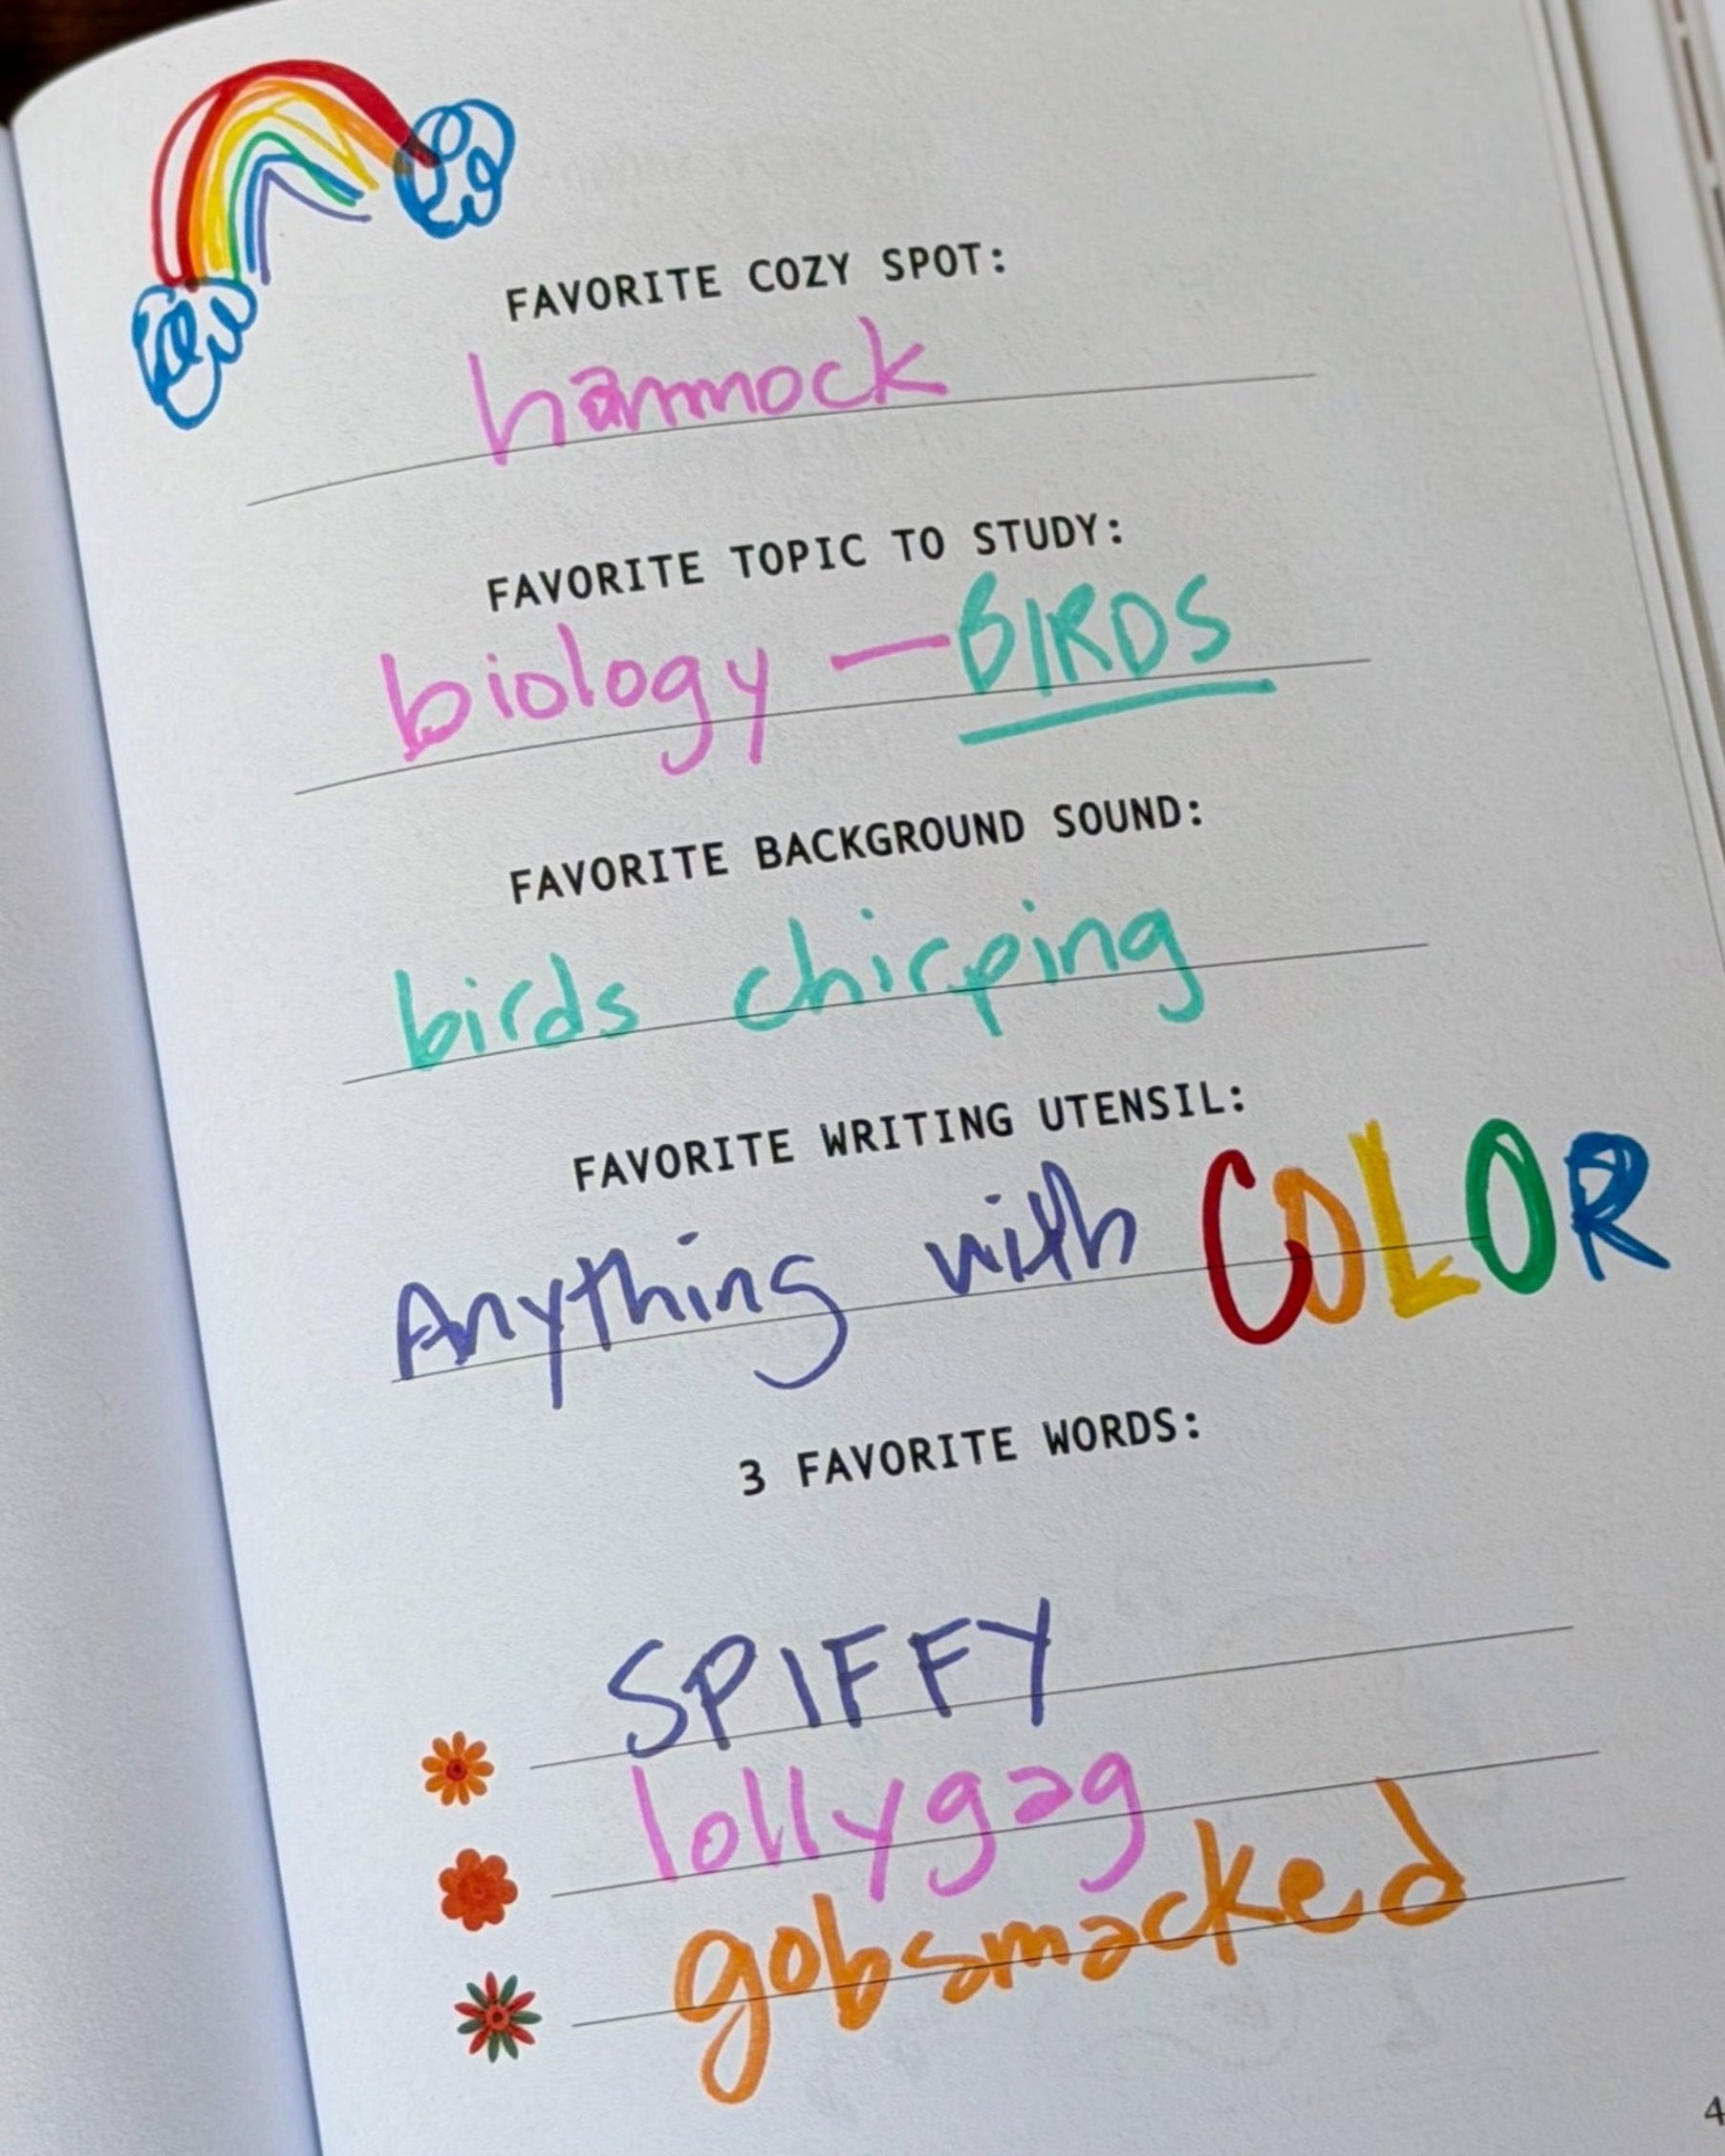 FAVORITE COZY SPOT:
hammock
FAVORITE TOPIC TO STUDY:
biology — BIRDS
FAVORITE BACKGROUND SOUND:
birds chirping
FAVORITE WRITING UTENSIL:
Anything with COLOR
3 FAVORITE WORDS:
SPIFFY
lollygag
gobsmacked
4